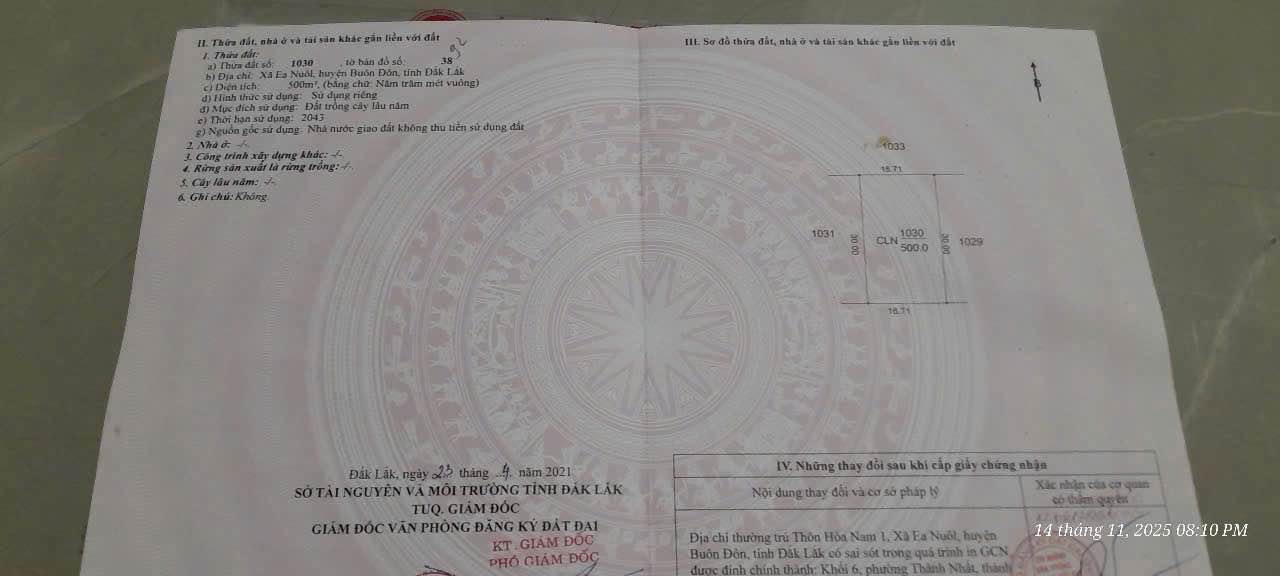 II. Thửa đất, nhà ở và tài sản khác gắn liền với đất
1. Thửa đất:
a) Thửa đất số: 1030 , tờ bản đồ số: 38
92
b) Địa chỉ: Xã Ea Nuôl, huyện Buôn Đôn, tỉnh Đắk Lắk
c) Diện tích: 500m², (bằng chữ: Năm trăm mét vuông)
d) Hình thức sử dụng: Sử dụng riêng
đ) Mục đích sử dụng: Đất trồng cây lâu năm
e) Thời hạn sử dụng: 2043
g) Nguồn gốc sử dụng: Nhà nước giao đất không thu tiền sử dụng đất
2. Nhà ở: -/-
3. Công trình xây dựng khác: -/-
4. Rừng sản xuất là rừng trồng: -/-
5. Cây lâu năm: -/-
6. Ghi chú: Không
Đắk Lắk, ngày 23 tháng 4 năm 2021
SỞ TÀI NGUYÊN VÀ MÔI TRƯỜNG TỈNH ĐẮK LẮK
TUQ. GIÁM ĐỐC
GIÁM ĐỐC VĂN PHÒNG ĐĂNG KÝ ĐẤT ĐAI
KT. GIÁM ĐỐC
PHÓ GIÁM ĐỐC
III. Sơ đồ thửa đất, nhà ở và tài sản khác gắn liền với đất
B
1033
16.71
1031
30.00
CLN 1030
500.0
30.00
1029
16.71
IV. Những thay đổi sau khi cấp giấy chứng nhận
Nội dung thay đổi và cơ sở pháp lý
Xác nhận của cơ quan
có thẩm quyền
14 tháng 11, 2025 08:10 PM
Địa chỉ thường trú Thôn Hòa Nam 1, Xã Ea Nuôl, huyện
Buôn Đôn, tỉnh Đắk Lắk có sai sót trong quá trình in GCN
được đính chính thành: Khối 6, phường Thành Nhất, thành